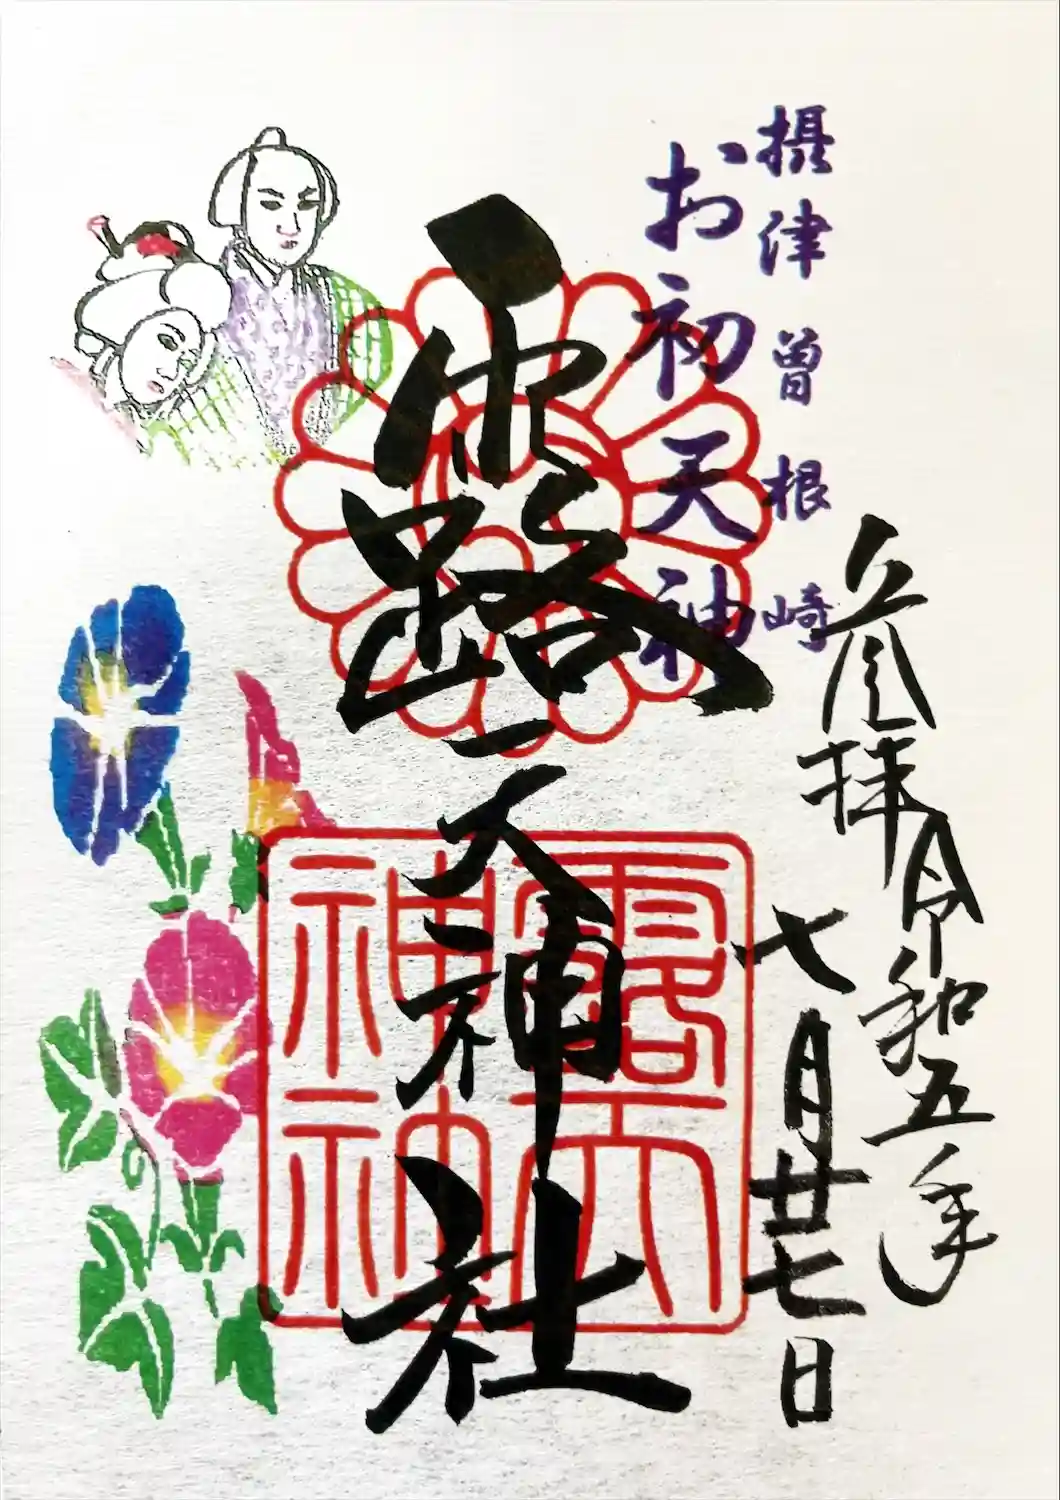 摂津曽根崎
お初天神
奉拝 令和五年
七月廿七日
露天神社
露天
神社